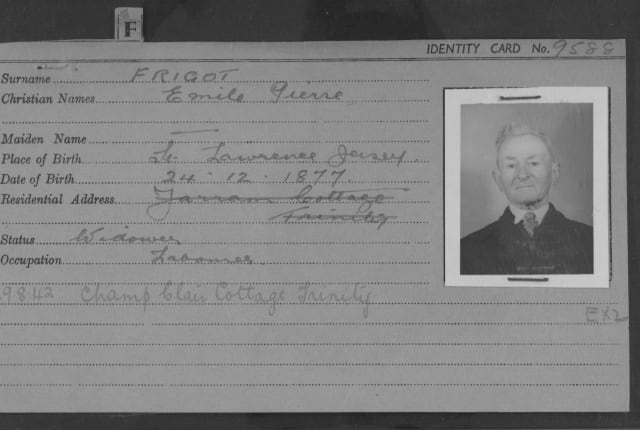 F
IDENTITY CARD No. 9588
Surname FRIGOT
Christian Names Emile Pierre
Maiden Name —
Place of Birth St. Lawrence Jersey.
Date of Birth 24.12.1877.
Residential Address Cottage
Trinity
Status Widower
Occupation Labourer.
9842 Champ Clair Cottage Trinity
EX2